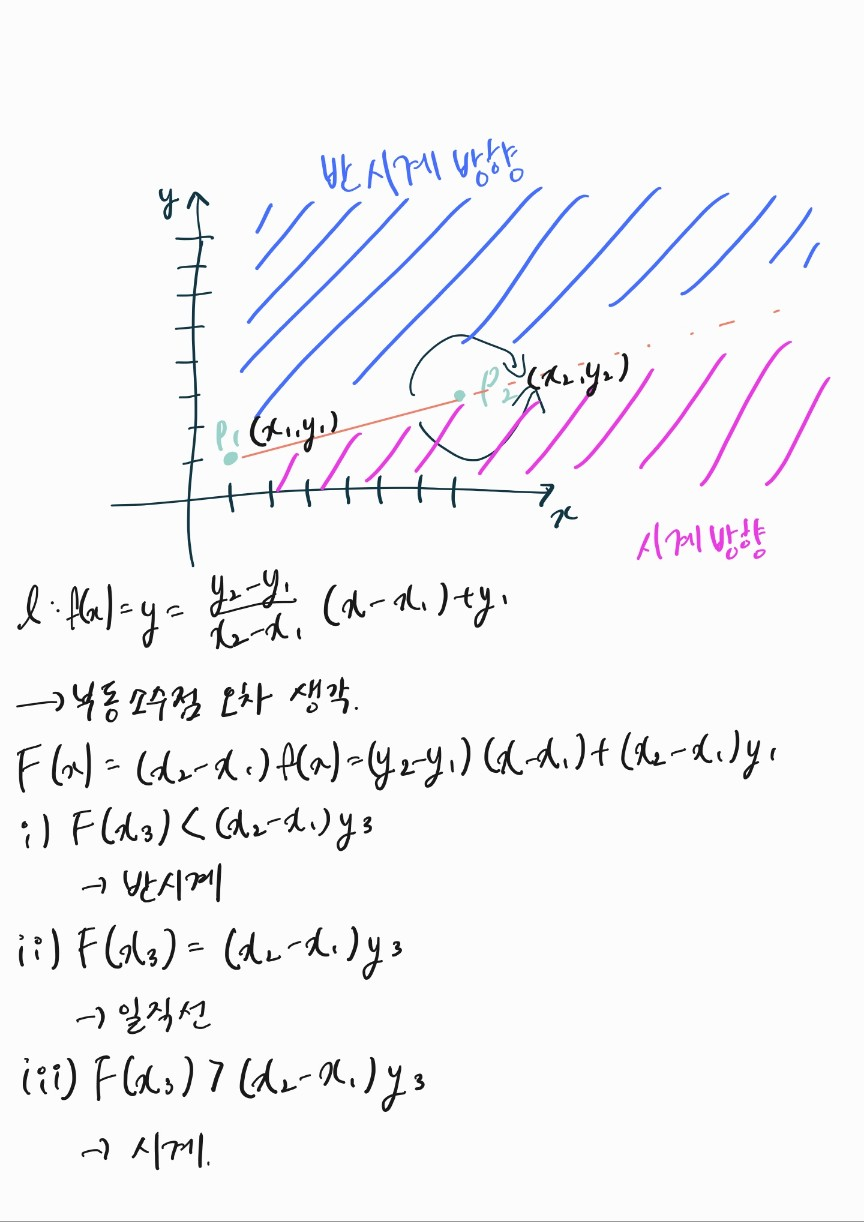 반시계 방향
y
P₂ (x₂,y₂)
P₁ (x₁,y₁)
x
시계 방향
l : f(x) = y = \frac{y₂-y₁}{x₂-x₁} (x-x₁)+y₁
→ 부동소수점 오차 생각.
F(x) = (x₂-x₁)f(x) = (y₂-y₁)(x-x₁)+(x₂-x₁)y₁
i) F(x₃) < (x₂-x₁)y₃
→ 반시계
ii) F(x₃) = (x₂-x₁)y₃
→ 일직선
iii) F(x₃) > (x₂-x₁)y₃
→ 시계.